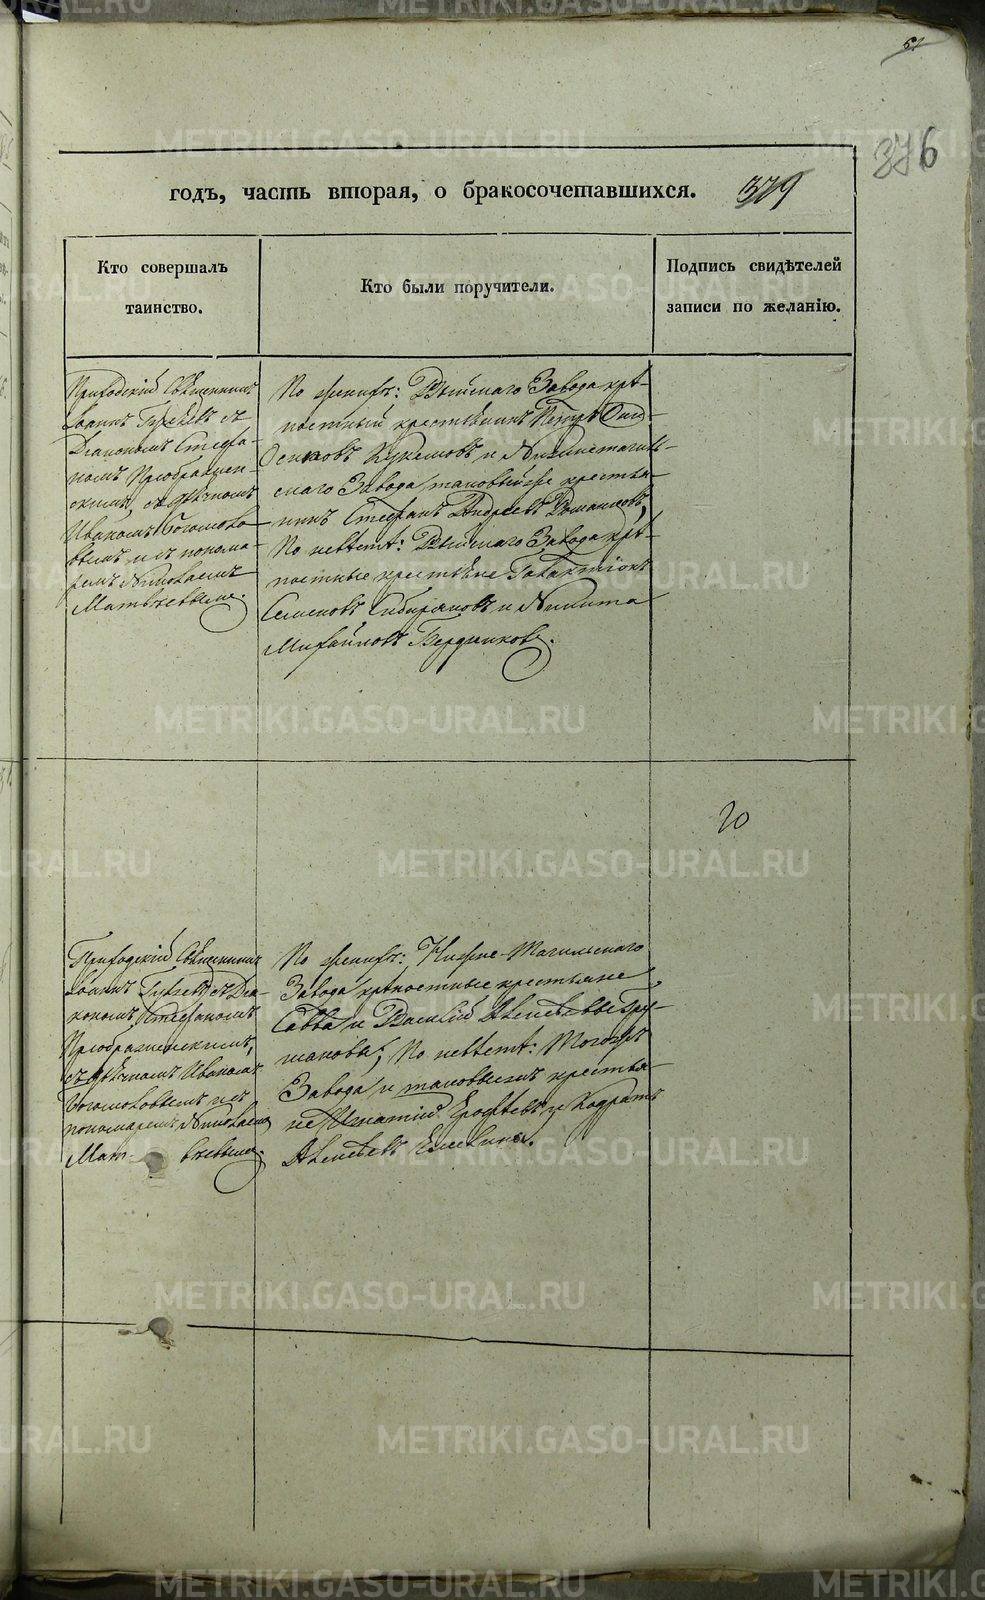 51
376
годъ, часть вторая, о бракосочетавшихся. 379
Кто совершалъ
таинство.
Кто были поручители.
Подпись свидѣтелей
записи по желанію.
Приходскій Священникъ
Іоаннъ съ
Діакономъ Стефа-
номъ Преображен-
скимъ, съ дьячкомъ
Иваномъ Богомоло-
вымъ и съ понома-
ремъ Николаемъ
Матвѣевымъ.
По женихѣ: Выйскаго Завода крѣ-
постный крестьянинъ Петръ
и Нижнетагиль-
скаго Завода таковый же крестья-
нинъ Стефанъ Андреевъ Романовъ,
По невѣстѣ: Выйскаго Завода крѣ-
постные крестьяне Галактіонъ
Семеновъ Сибиряковъ и Никита
Михайловъ Бердниковъ.
20
Приходскій Священникъ
Іоаннъ съ Діа-
кономъ Стефаномъ
Преображенскимъ,
съ дьячкомъ Иваномъ
Богомоловымъ и съ
пономаремъ Николаемъ
Мат- вѣевымъ.
По женихѣ: Нижне-Тагильскаго
Завода крѣпостные крестьяне
Савва и Василій Алексѣевы
По невѣстѣ: Тогожъ
Завода и таковыежъ крестья-
не Игнатій Ерофѣевъ и Кодратъ
Алексѣевъ
METRIKI.GASO-URAL.RU